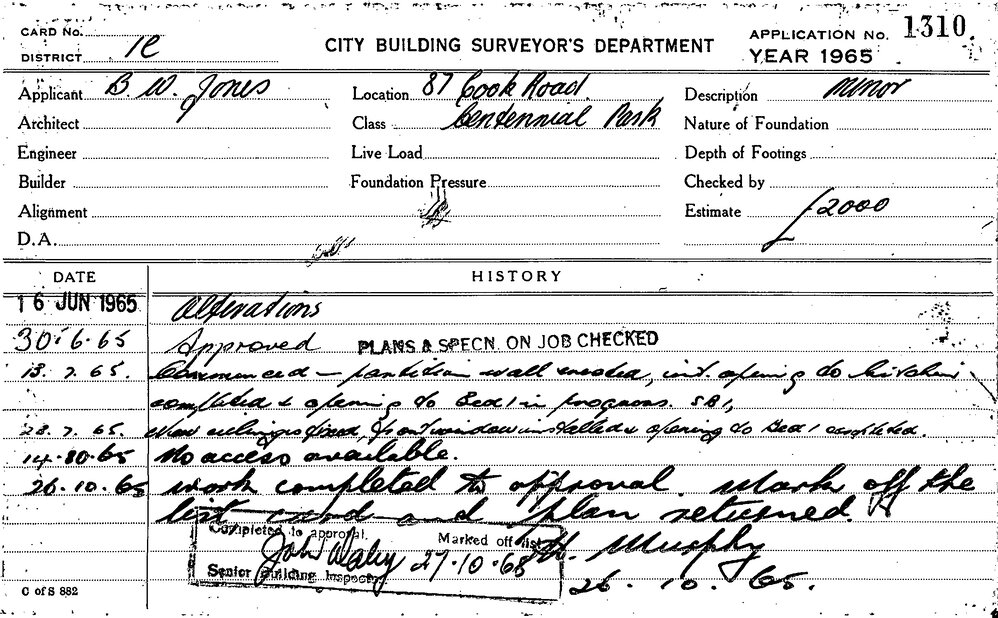 CARD No.
DISTRICT
CITY BUILDING SURVEYOR'S DEPARTMENT
APPLICATION No. 1310
YEAR 1965
Applicant B. W. Jones
Location 87 Cook Road
Description Minor
Architect
Class Centennial Park
Nature of Foundation
Engineer
Live Load
Depth of Footings
Builder
Foundation Pressure
Checked by
Alignment
Estimate £2000
D.A.
DATE HISTORY
16 JUN 1965 Alterations
30.6.65 Approved PLANS & SPECN. ON JOB CHECKED
13.7.65. Commenced – partition wall erected, int. opening to kitchen
completed & opening to Bed 1 in progress.
28.7.65 New ceilings fixed, front window installed & opening to Bed 1 completed.
14.10.65 No access available.
26.10.65 Work completed to approval. Mark off the
list card and plan returned.
Completed to approval. Marked off list
John Daley 27.10.65
Senior Building Inspector
Murphy
26.10.65.
C of S 882